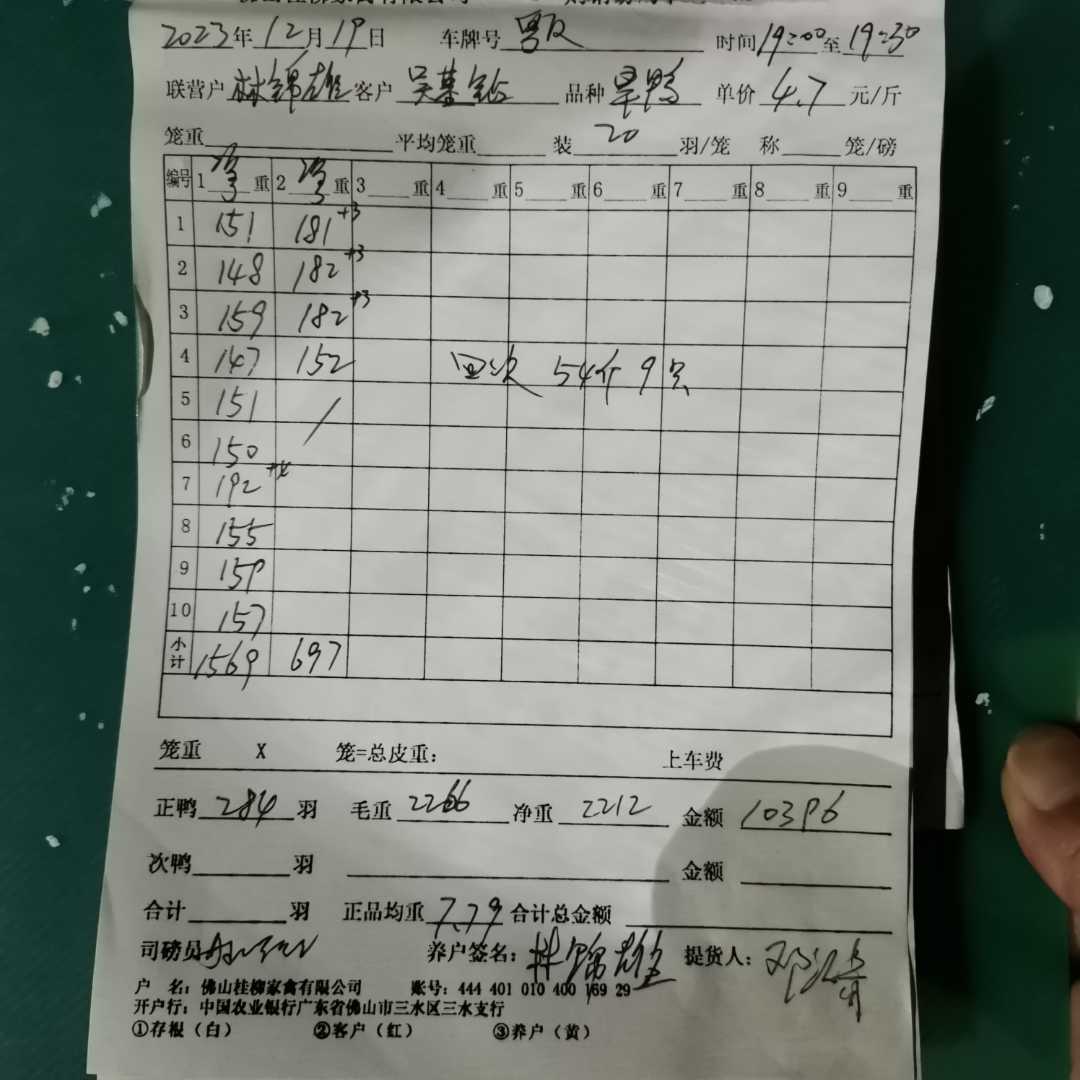 2023年12月19日 车牌号 粤 时间19:00至19:30
联营户 林锦雄 客户 吴慕钻 品种 旱鸭 单价 4.7 元/斤
笼重 平均笼重 装 20 羽/笼 称 笼/磅
编号 1 重 2 重 3 重 4 重 5 重 6 重 7 重 8 重 9 重
1 151 181 +3
2 148 182 +3
3 159 182 +3
4 147 152 四次 54斤 9只
5 151 /
6 150
7 192 +4
8 155
9 159
10 157
小计 1569 697
笼重 X 笼=总皮重:
上车费
正鸭 284 羽 毛重 2266 净重 2212 金额 10396
次鸭 羽 金额
合计 羽 正品均重 7.79 合计总金额
司磅员 养户签名: 林锦雄 提货人:
户 名: 佛山桂柳家禽有限公司 账号: 444 401 010 400 169 29
开户行: 中国农业银行广东省佛山市三水区三水支行
①存根(白) ②客户(红) ③养户(黄)